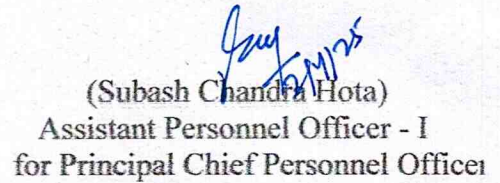 (Subash Chandra Hota)
Assistant Personnel Officer - I
for Principal Chief Personnel Officer